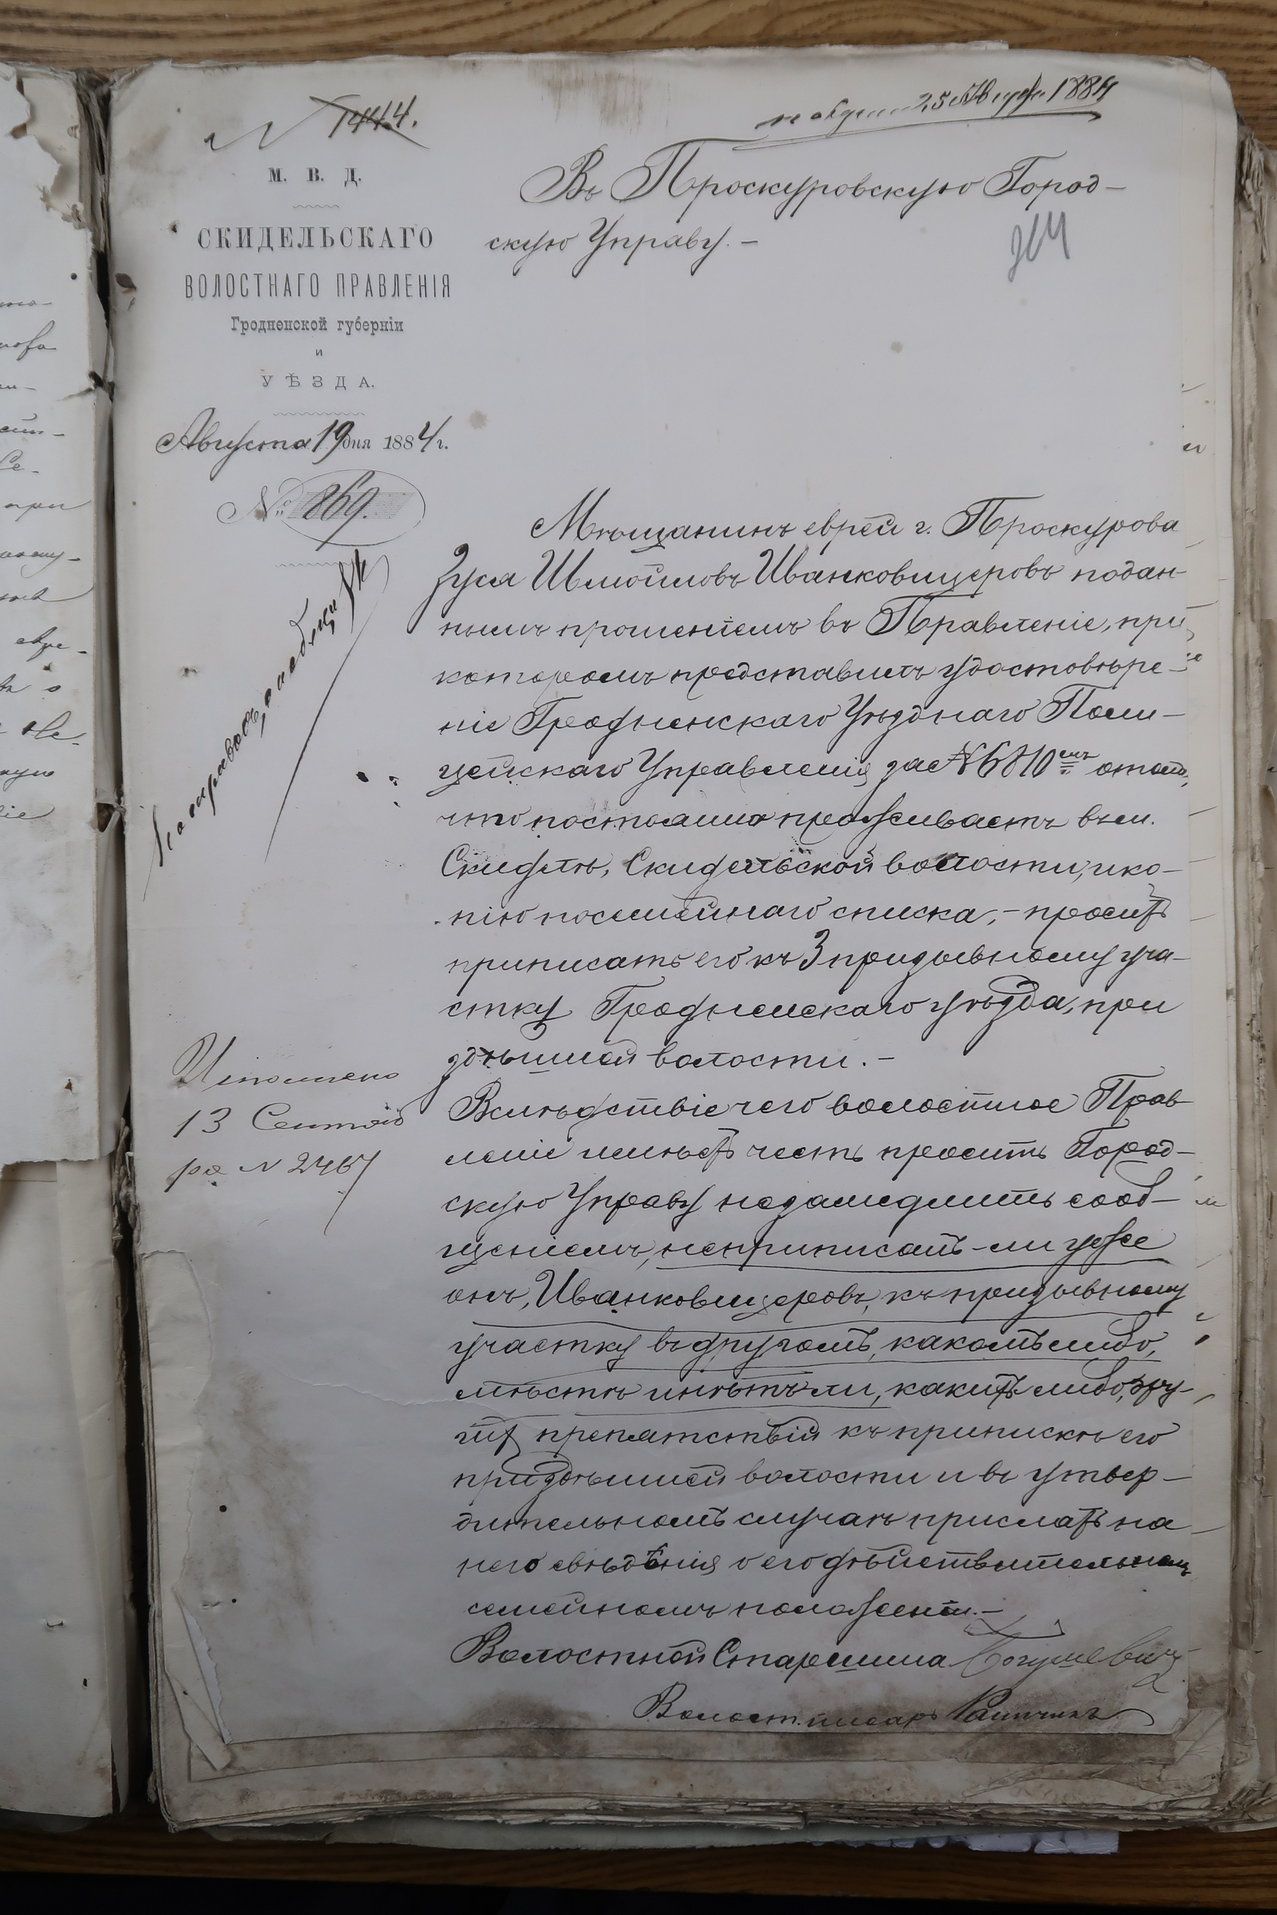 N 1444.
получено 25 Августа 1884
М. В. Д.
СКИДЕЛЬСКАГО
ВОЛОСТНАГО ПРАВЛЕНІЯ
Гродненской губерніи
и
УѢЗДА.
Августа 19 дня 1884 г.
№ 869.
Въ Проскуровскую Город-
скую Управу. -
Мѣщанинъ еврей г. Проскурова
Зуся Шмойловъ Иванковицеровъ подан-
нымъ прошеніемъ въ Правленіе, при
которомъ представилъ удостовѣре-
ніе Гродненскаго Уѣзднаго Поли-
цейскаго Управленія за № 6810 отомъ,
что постоянно проживаетъ въ м.
Скидлѣ, Скидельской волости, и ко-
пію посемейнаго списка, - проситъ
приписать его къ 3 призывному уча-
стку Гродненскаго уѣзда, при
здѣшней волости. -
Вслѣдствіе чего волостное Прав-
леніе имѣетъ честь просить Город-
скую Управу незамедлить сооб-
щеніемъ, неприписанъ-ли уже
онъ, Иванковицеровъ, къ призывному
участку въ другомъ, какомъ либо,
мѣстѣ и нѣтъ ли, какихъ-либо, дру-
гихъ препятствій къ припискѣ его
при здѣшней волости и въ утвер-
дительномъ случаѣ прислать на
него свѣдѣнія о его дѣйствительномъ
семейномъ положеніи. -
Волостной Старшина Богушевичъ
Волост. писарь
Исполнено
13 Сентяб
ря N 2467